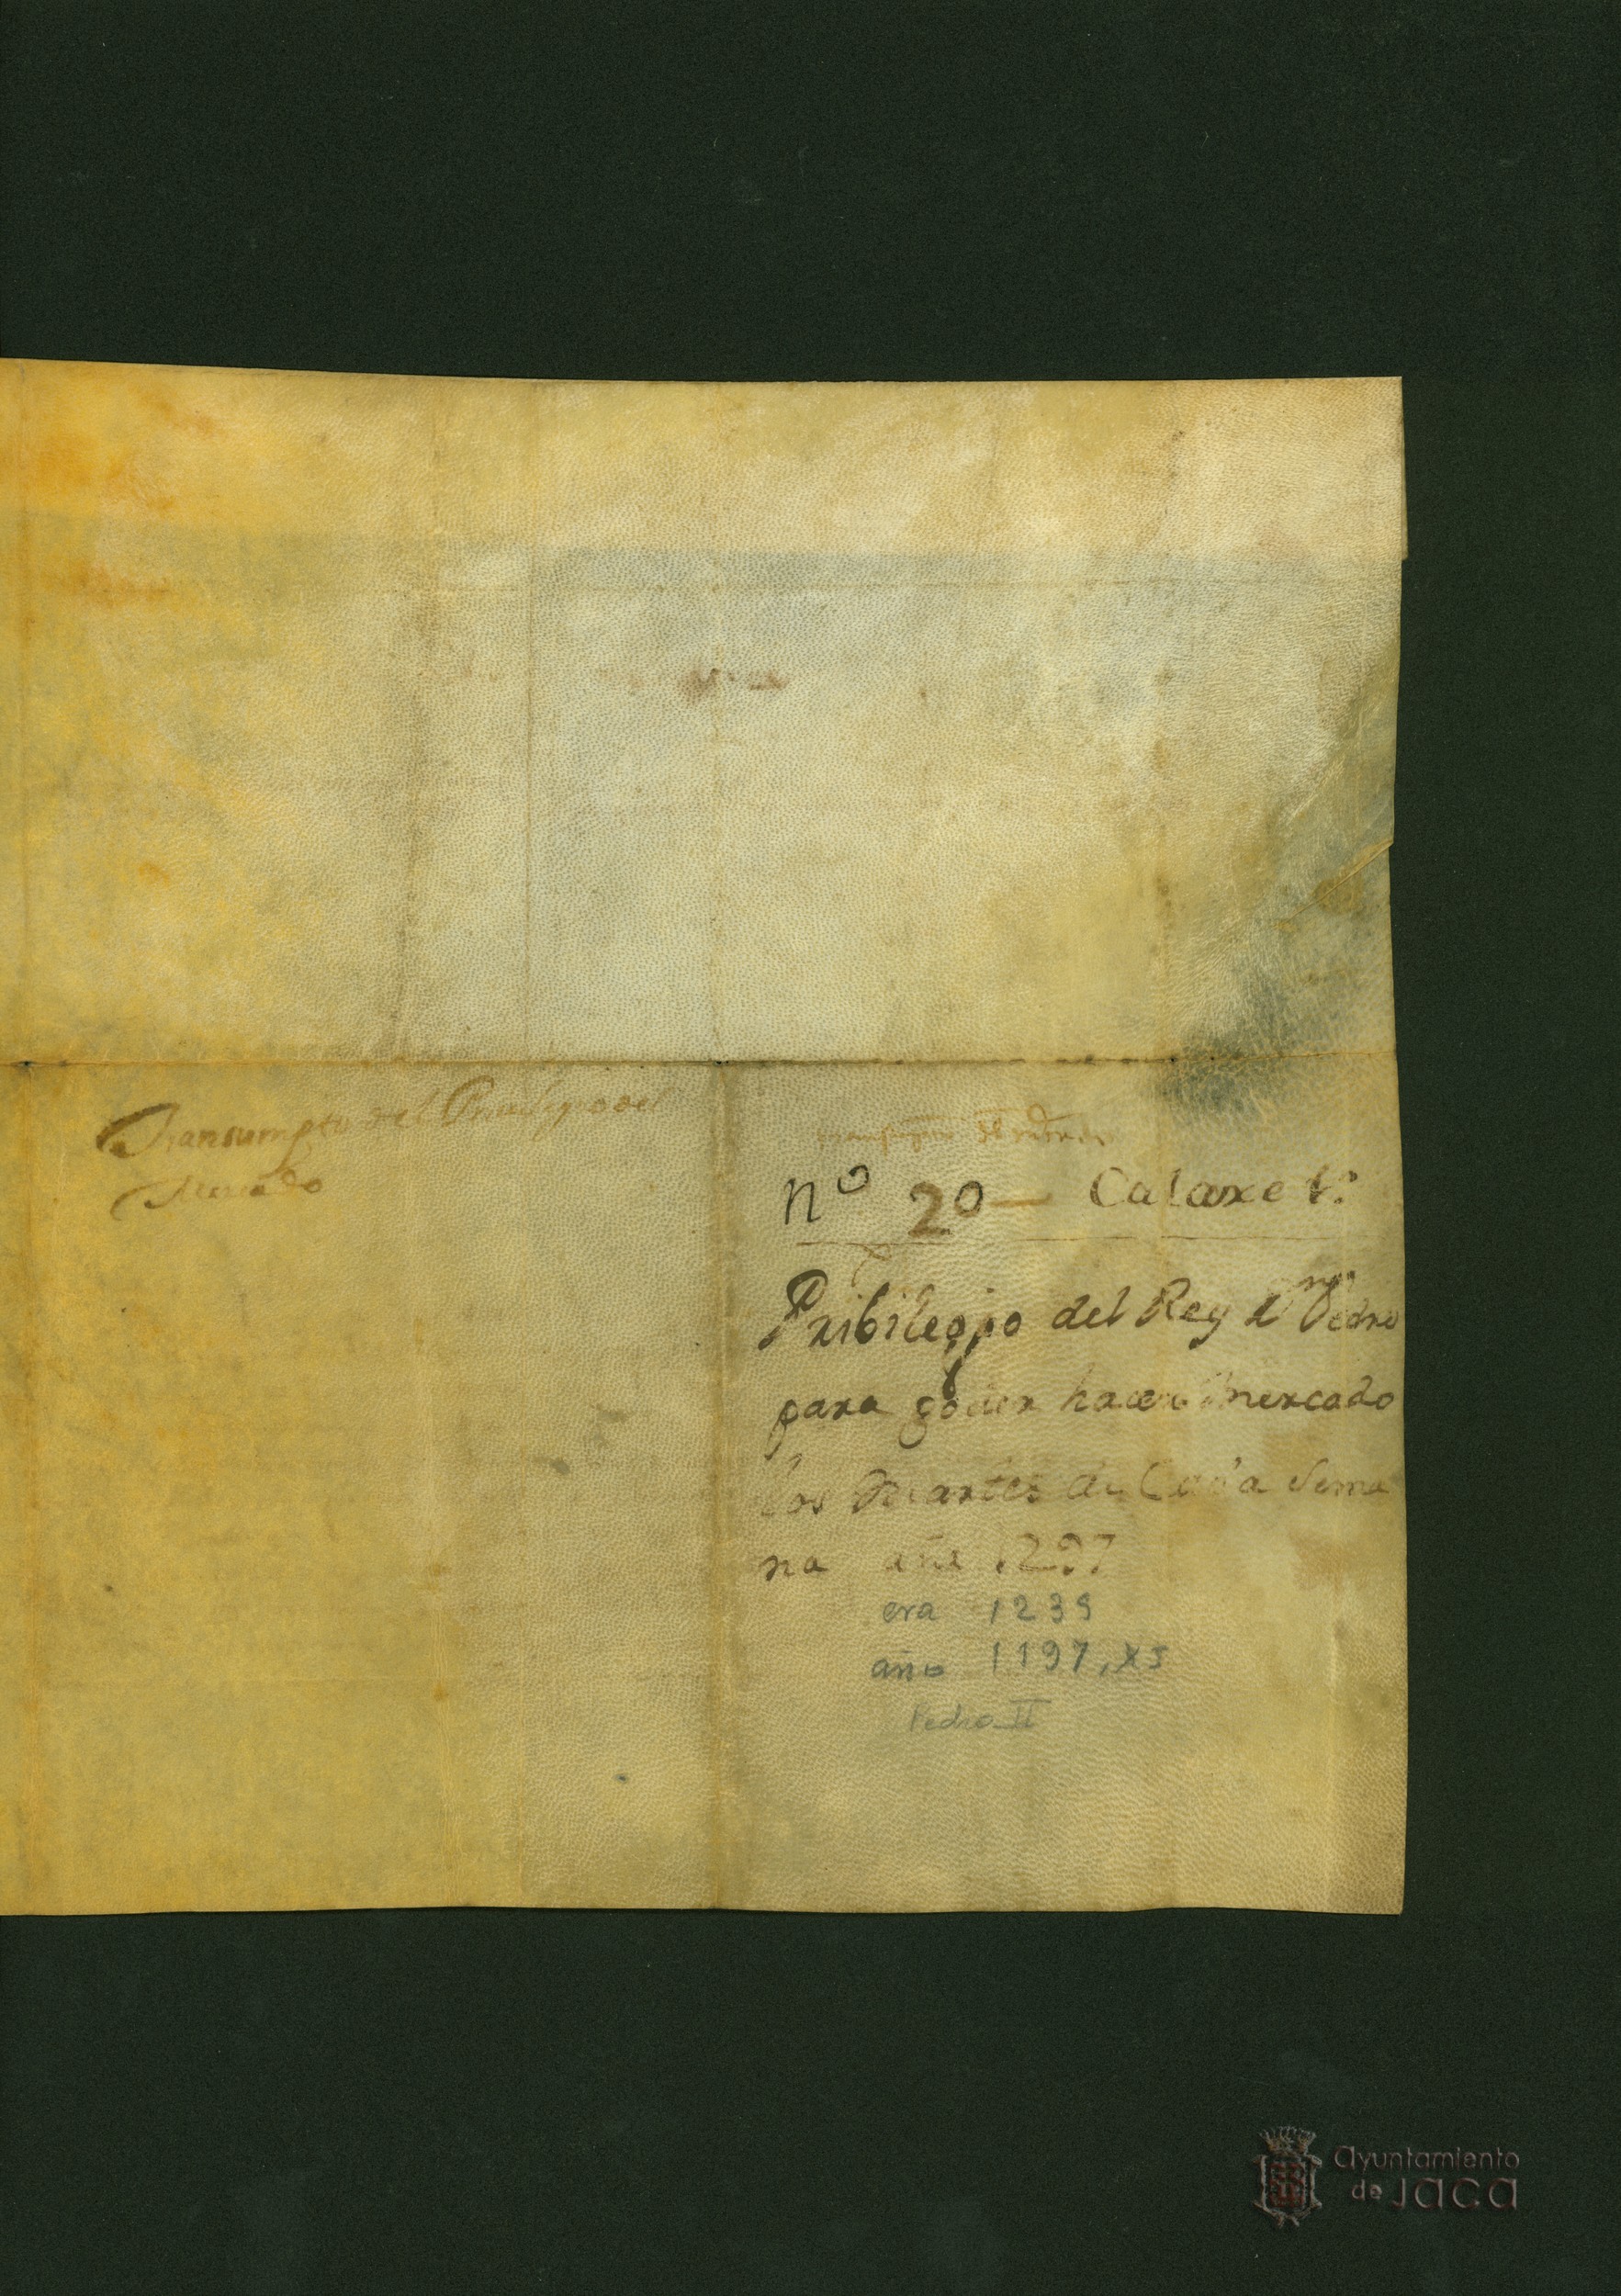 Transumpto del Privilegio del
Mercado
nº 20 — Calaxe 1º
Pribilegio del Rey Dn Pedro
para poder hacer Mercado
los Martes de Cada Sema
na año 1297
era 1239
año 1197, XI
Pedro II
ayuntamiento
de Jaca